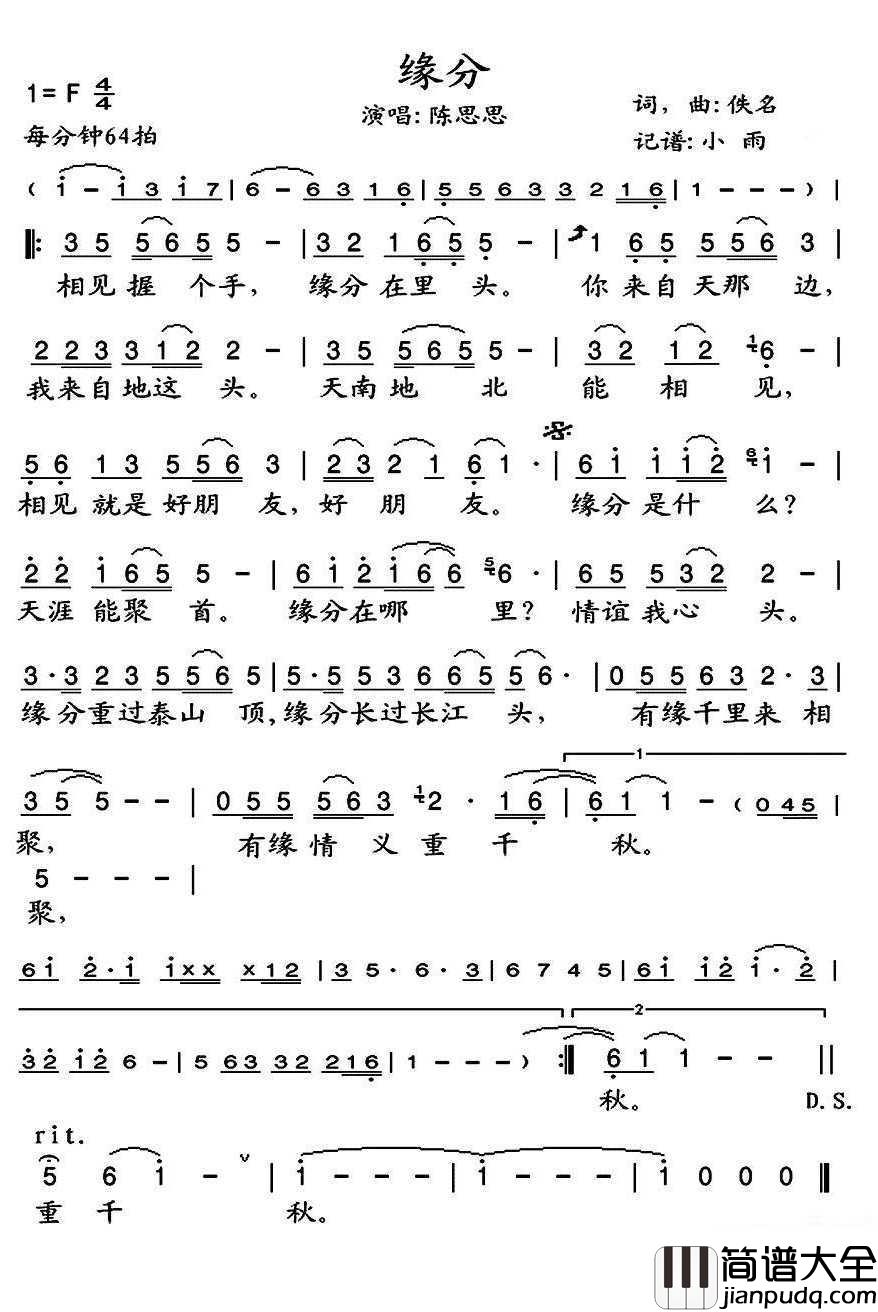 缘分
1= F 4/4
演唱: 陈思思
词，曲: 佚名
每分钟64拍
记谱: 小 雨
( i - i 3 i 7 | 6 - 6 3 1 6 | 5 5 6 3 3 2 1 6 | 1 - - - ) |
‖: 3 5 5 6 5 5 - | 3 2 1 6 5 5 - | 1 6 5 5 5 6 3 |
相见 握 个 手， 缘分 在里 头。 你 来自 天那 边，
2 2 3 3 1 2 2 - | 3 5 5 6 5 5 - | 3 2 1 2 6 - |
我来自地这 头。 天南地 北 能 相 见，
5 6 1 3 5 5 6 3 | 2 3 2 1 6 1 · | 6 i i i 2 i - |
相见 就是 好朋 友，好 朋 友。 缘分 是什 么？
2 2 i 6 5 5 - | 6 i 2 i 6 6 6 · | 6 5 5 3 2 2 - |
天涯 能聚 首。 缘分在哪 里？ 情谊 我心 头。
3 · 3 2 3 5 5 5 6 5 | 5 · 5 5 3 6 6 5 5 6 · | 0 5 5 6 3 2 · 3 |
缘分重过泰山 顶，缘分长过长江 头， 有缘千里来 相
1
3 5 5 - - | 0 5 5 5 6 3 2 · 1 6 | 6 1 1 - ( 0 4 5 |
聚， 有缘 情 义 重 千 秋。
5 - - - |
聚，
6 i 2 · i i x x x 1 2 | 3 5 · 6 · 3 | 6 7 4 5 | 6 i i 2 i · 2 |
2
3 2 i 2 6 - | 5 6 3 3 2 2 1 6 | 1 - - - ) :‖ 6 1 1 - - ‖
秋。 D.S.
rit.
5 6 i - ˅ | i - - - | i - - - | i 0 0 0 ‖
重 千 秋。
简谱大全
jianpudq.com